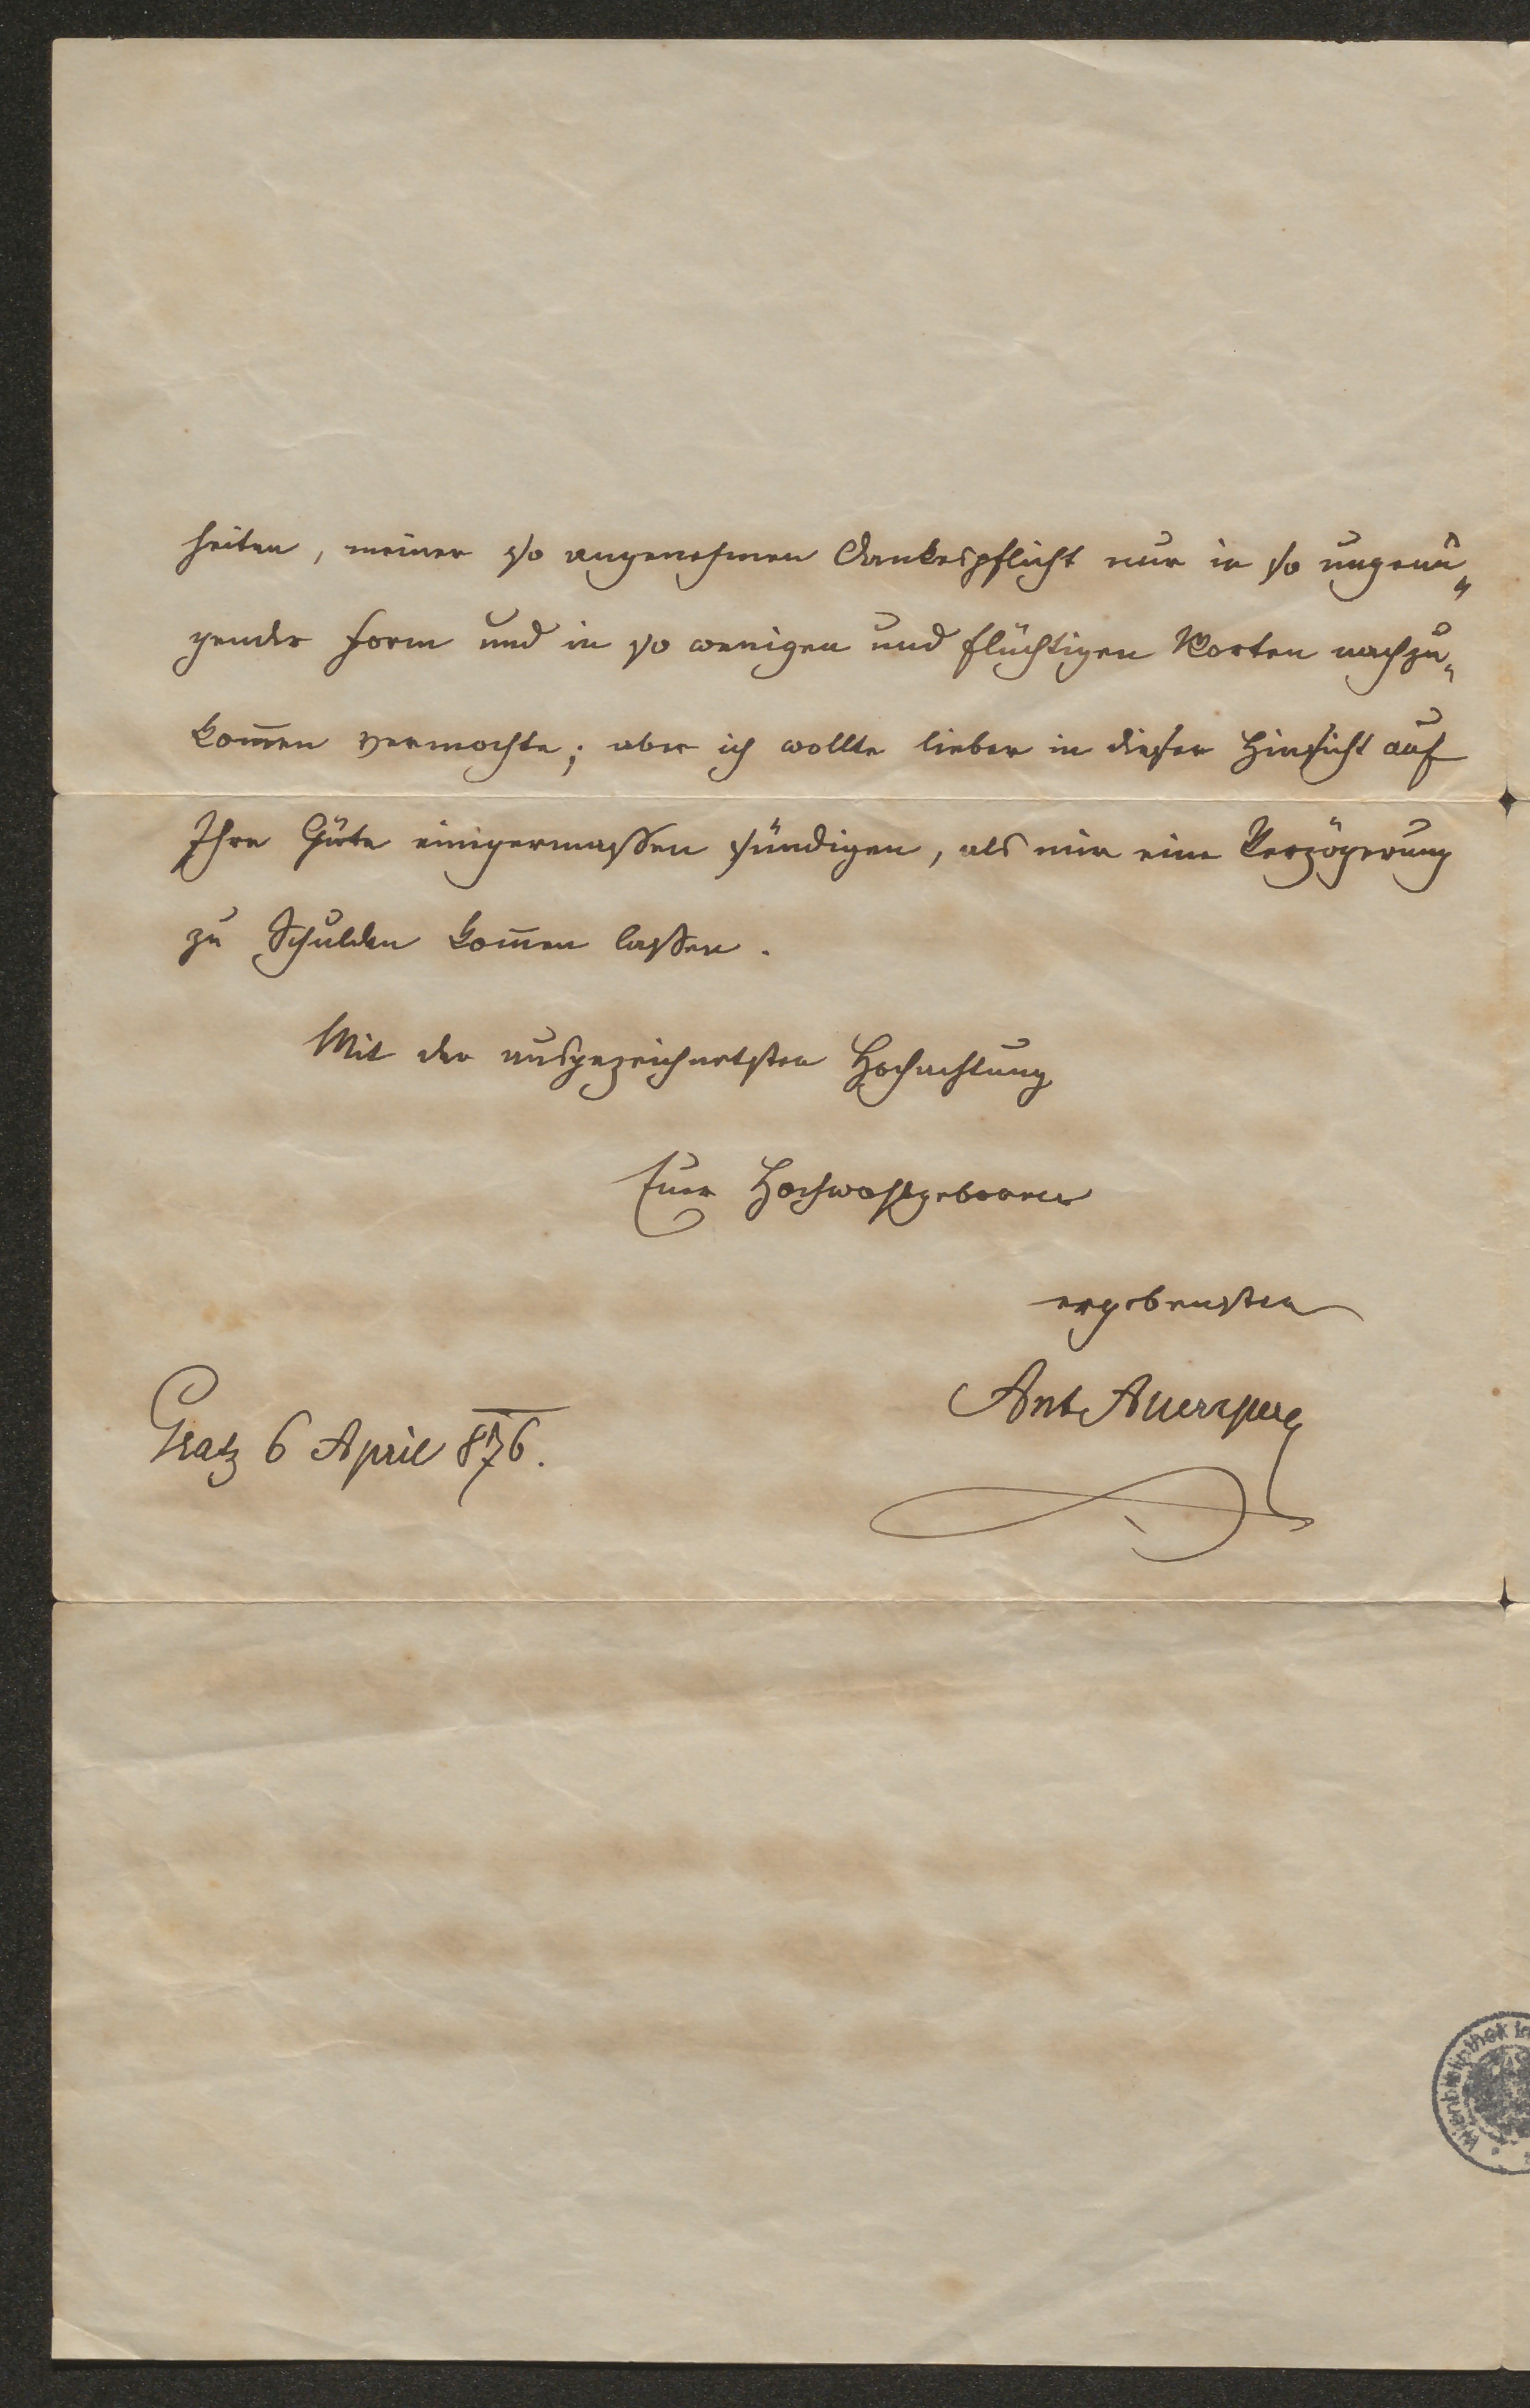 heiten, meiner so angenehmen Dankespflicht nur in so ungenü„
gender Form und in so wenigen und flüchtigen Worten nachzu„
kom̄en vermochte; aber ich wollte lieber in dieser Hinsicht auf
Ihre Güte einigermassen sündigen, als mir eine Verzögerung
zu Schulden kom̄en lassen.
Mit der ausgezeichnetsten Hochachtung
Euer Hochwohlgeboren
ergebenster
Ant Auersperg
Gratz 6 April 876.
Wienbibliothek